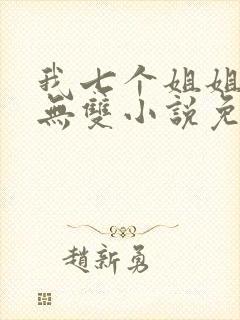 我七个姐姐
無雙小說免
趙新勇